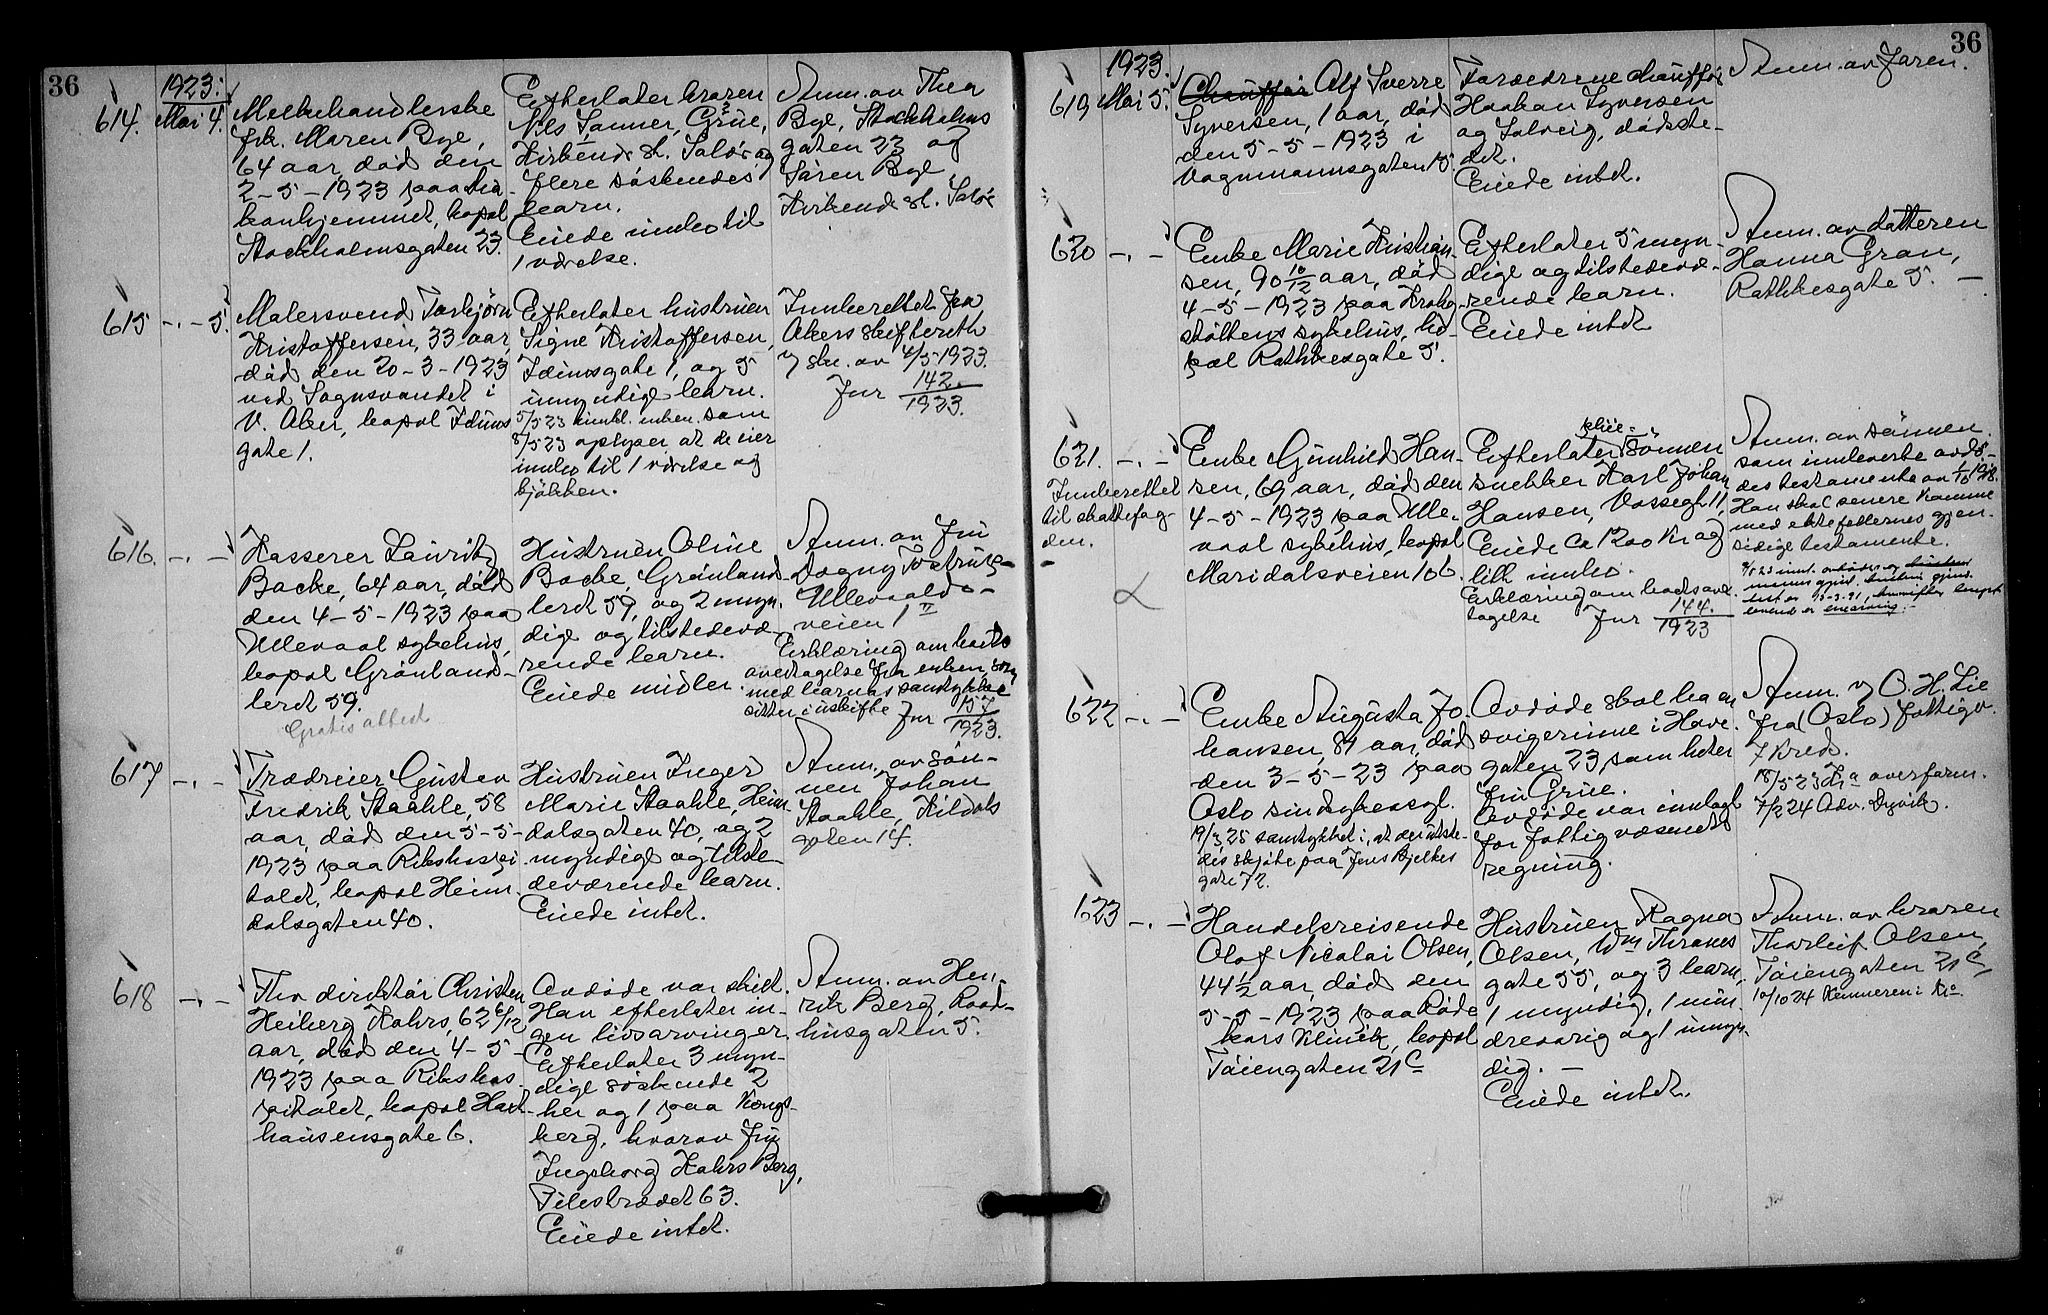 36
1923:
614. Mai 4.
Melkehandlerske
frk. Maren Bye,
64 aar, død den
2-5-1923 paa Dia-
konhjemmet, bopæl
Stockholmsgaten 23.
Efterlater broren
Nils Sanner, Grue,
Kirkenær st. Solør og
flere søskendes
barn.
Eiede innbo til
1 værelse.
Anm. av Thea
Bye, Stockholms
gaten 23 og
Søren Bye
Kirkenær st. Solør
615 -.- 5.
Malersvend Torbjørn
Kristoffersen, 33 aar,
død den 20-3-1923
ved Sognsvandet i
V. Aker, bopæl Iduns
gate 1.
Efterlater hustruen
Signe Kristoffersen,
Idunsgate 1, og 5
umyndige barn.
5/5 23 innkl. enken som
8/5 23 oplyser at de eier
innbo til 1 værelse og
kjøkken.
Innberettet fra
Akers skifterett
i skr. av 4/5 1923.
Jnr 142.
1923.
616. -.-
Kasserer Lauritz
Backe, 64 aar, død
den 4-5-1923 paa
Ullevaal sykehus,
bopæl Grønland-
leret 59.
Gratis attest
Hustruen Oline
Backe, Grønland
leret 59, og 2 myn-
dige og tilstedevæ-
rende barn.
Eiede midler.
Anm. av Fru
Dagny
Ullevaals-
veien 1 II
Erklæring om bo-
overtagelse fra enken, som
med barnas samtykke
sitter i uskifte Jnr 157
1923.
617 -.-
Trædreier Gustav
Fredrik Staahle, 58
aar, død den 5-5-
1923 paa Rikshospi
talet, bopæl Heim
dalsgaten 40.
Hustruen Inger
Marie Staahle, Heim
dalsgaten 40, og 2
myndige og tilste-
deværende barn.
Eiede intet.
Anm. av søn-
nen Johan
Staahle,
gaten 14.
618 -.-
Fhv. direktør Christen
Heiberg Kahrs, 62 6/12
aar, død den 4-5-
1923 paa Rikshos-
pitalet, bopæl Haxt-
hausensgate 6.
Avdøde var skilt.
Han efterlater in-
gen livsarvinger.
Efterlater 3 myn-
dige søskende 2
her og 1 paa Kongs-
berg, hvorav fru
Ingeborg Kahrs Berg,
Pilestrædet 63.
Eiede intet.
Anm. av Hen-
rik Berg, Raad-
husgaten 5.
36
1923.
619 Mai 5.
Chauffør Alf Sverre
Syversen, 1 aar, død
den 5-5-1923 i
Vognmannsgaten 15.
Foreldrene chauffør
Haakon Syversen
og Solveig, dødsste-
det.
Eiede intet.
Anm. av faren.
620 -.-
Enke Marie Kristian-
sen, 90 10/12 aar, død
4-5-1923 paa Krohg-
støttens sykehus, bo-
pæl Rathkesgate 5.
Efterlater 5 myn-
dige og tilstedevæ-
rende barn.
Eiede intet
Anm. av datteren
Hanna Gran,
Rathkesgate 5. -
621. -.-
Innberettet
til skattefog-
den.
Enke Gunhild Han-
sen, 69 aar, død den
4-5-1923 paa Ulle-
vaal sykehus, bopæl
Maridalsveien 106.
Efterlater sønnen
snekker Karl Johan
Hansen, Vossegt 11,
Eiede ca 1200 kr og
litt innbo.
Erklæring om boets over-
tagelse Jnr 144.
1923
Anm. av sønnen
som innleverte avdø-
des testamente av 1/10 1918.
Han skal senere komme
med ektefellernes gjen-
sidige testamente.
622 -.-
Enke Augusta Jo-
hansen, 84 aar, død
den 3-5-23 paa
Oslo sindsykeasyl.
19/3 25 samtykket i, at der utste-
des skjøte paa Jens Bjelkes
gate 72.
Avdøde skal ha en
svigerinne i Have-
gaten 23, som heter
fru Grue.
Avdøde var innlagt
for fattigvæsenets
regning.
Anm. v O. H. Lie
fra (Oslo) fattigv.
7 kreds.
18/5 23 Kra overform.
7/2 24 Adv.
623 -.-
Handelsreisende
Olaf Nicolai Olsen,
44 1/2 aar, død den
5-5-1923 paa Røde
kors klinik, bopæl
Tøiengaten 21 C
Hustruen Ragna
Olsen, Wm Thranes
gate 55, og 3 barn,
1 myndig, 1 min-
dreaarig og 1 umyn-
dig. -
Eiede intet.
Anm. av broren
Thorleif Olsen,
Tøiengaten 21 C,
10/10 24 Kemneren i Kra.